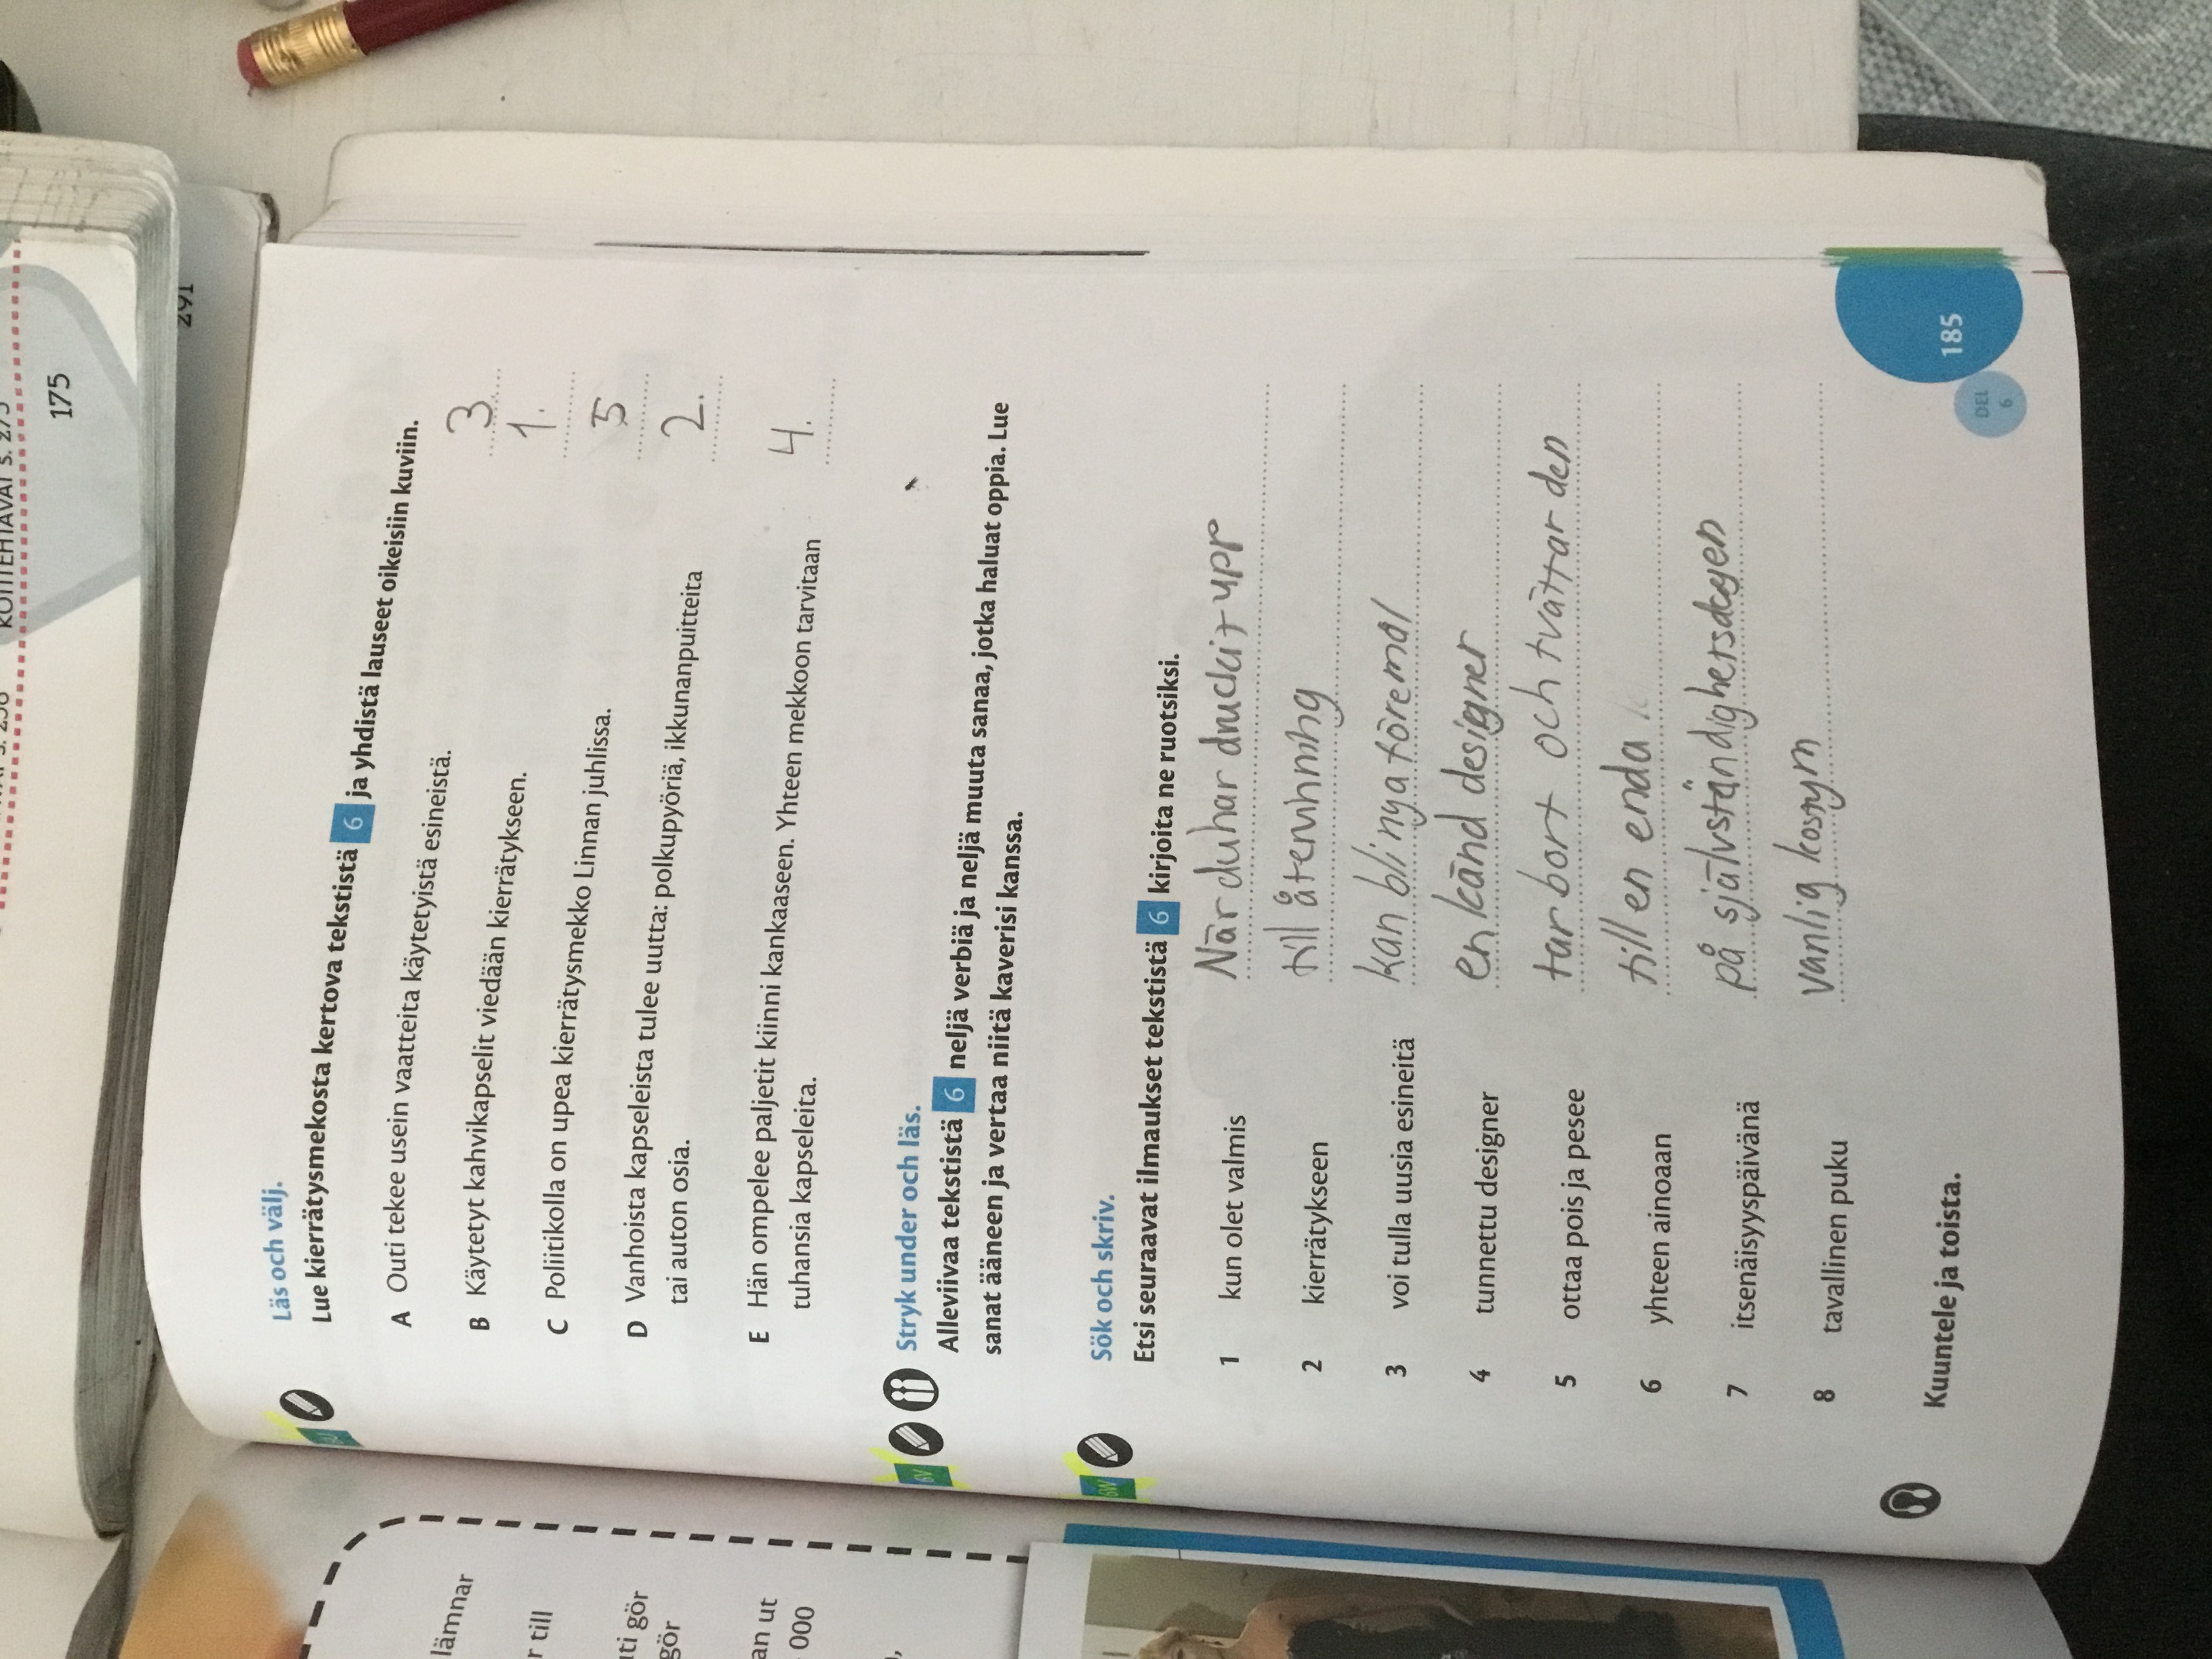 175
291
Läs och välj.
Lue kierrätysmekosta kertova tekstistä 6 ja yhdistä lauseet oikeisiin kuviin.
A Outi tekee usein vaatteita käytetyistä esineistä. 3
B Käytetyt kahvikapselit viedään kierrätykseen. 1.
C Poliitikolla on upea kierrätysmekko Linnan juhlissa. 5
D Vanhoista kapseleista tulee uutta: polkupyöriä, ikkunanpuitteita 2.
tai auton osia.
E Hän ompelee paljetit kiinni kankaaseen. Yhteen mekkoon tarvitaan 4.
tuhansia kapseleita.
6V
Stryk under och läs.
Alleviivaa tekstistä 6 neljä verbiä ja neljä muuta sanaa, jotka haluat oppia. Lue
sanat ääneen ja vertaa niitä kaverisi kanssa.
6W
Sök och skriv.
Etsi seuraavat ilmaukset tekstistä 6 kirjoita ne ruotsiksi.
1 kun olet valmis När du har druckit upp
2 kierrätykseen till återvinning
3 voi tulla uusia esineitä kan bli nya föremål
4 tunnettu designer en känd designer
5 ottaa pois ja pesee tar bort och tvättar den
6 yhteen ainoaan till en enda
7 itsenäisyyspäivänä på självständighetsdagen
8 tavallinen puku vanlig kostym
Kuuntele ja toista.
DEL
6
185
lämnar
r till
uti gör
gör
an ut
000